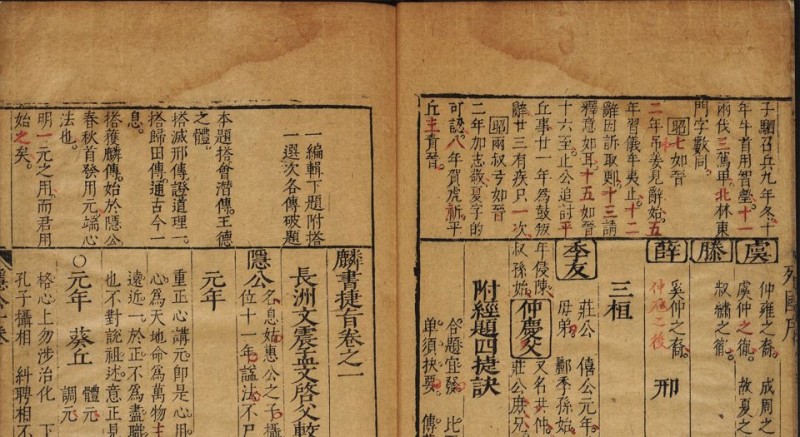 子駟召兵九年冬十
兩伐三萬軍北林東
門字數同
昭七如晉
二年吊姜見辭始五
年習儀午夷止十二
辭因訴取郠十三請
釋意如耳十五如晉
十六至止公追討平
丘事廿一年為鼓叛
辭廿三有疾只一次
昭兩叔弓如晉
二年加志敬夏子的
可認八年賀虒祈平
丘主會晉
虞
仲雍之裔
虞仲之後
成周之
故夏之
滕
叔繡之後
薛
奚仲之裔
仲虺之後
邢
三桓
季友
莊公
母弟
僖公元年
酈季孫始
年侵陳
叔孫始
仲慶父
又名共仲
莊公庶兄
附經題四捷訣
合題宜發
單須扶要
一編輯下題附搭
一選次各傳破題
本題搭會潛傳王德
之體
搭滅邢傳證道理一
搭歸田傳通古今一
息
搭獲麟傳始於隱公
春秋首發用元端心
法也
明一元之用而君用
始之矣
麟書捷旨卷之一
長洲文震孟文啓父較
隱公
名息姑惠公之子攝
位十一年諡法不尸
元年
重正心講元即是心用
心為天地命為萬物主
遠近一於正不為盡職
也不對說祖述意正見
○元年
葵丘
體元
調元
格心上勿涉治化
孔子攝相
糾聘相不